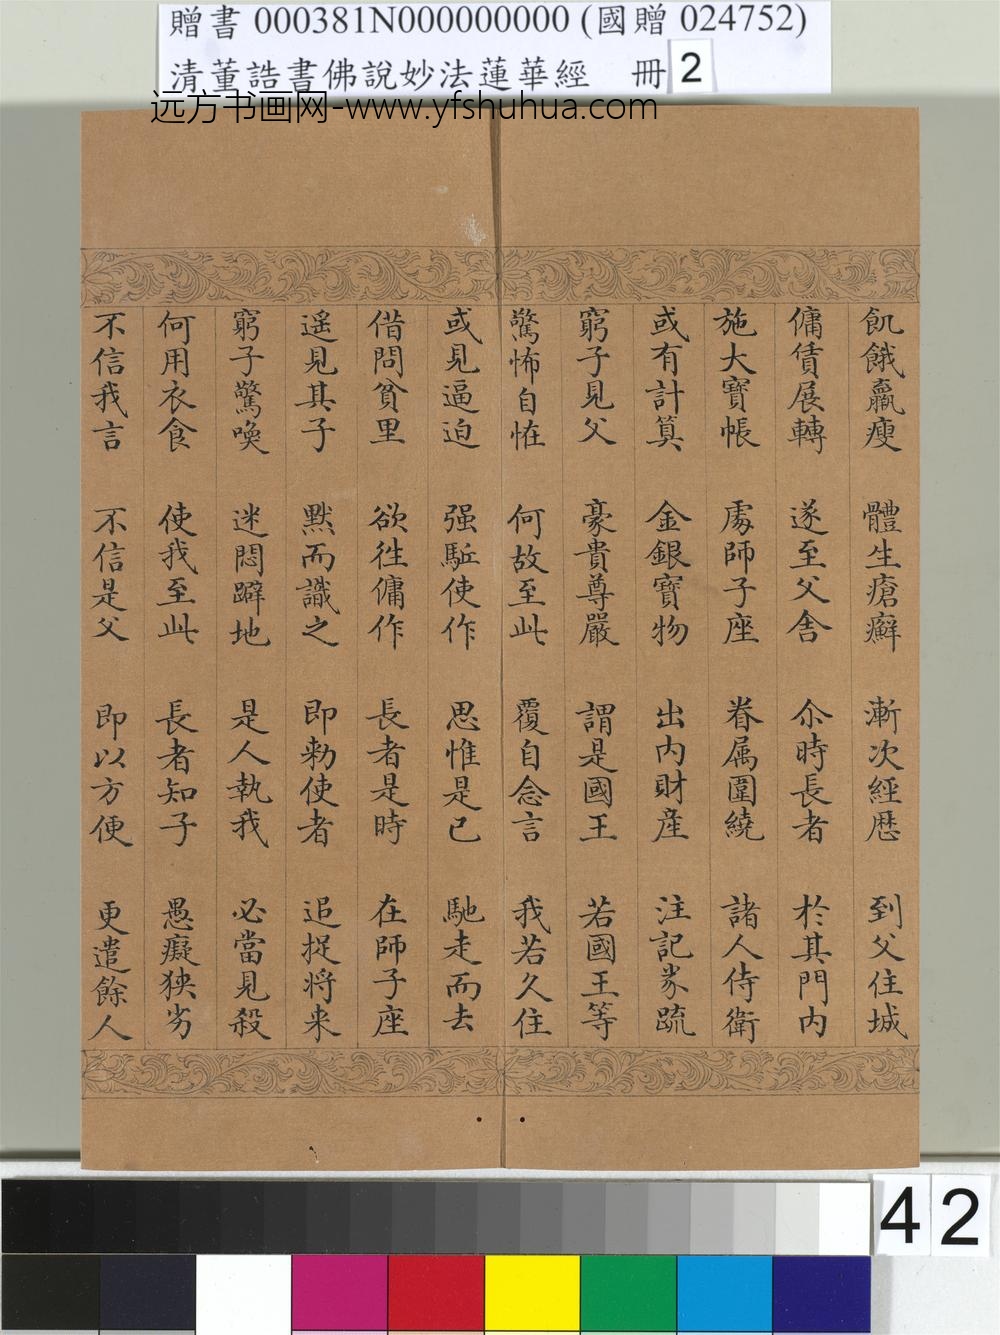 贈書 000381N000000000 (國贈 024752)
清董誥書佛說妙法蓮華經 冊 2
远方书画网-www.yfshuhua.com
飢餓羸瘦 體生瘡癬 漸次經歷 到父住城
傭賃展轉 遂至父舍 尒時長者 於其門內
施大寶帳 處師子座 眷属圍繞 諸人侍衛
或有計算 金銀寶物 出內財産 注記券疏
窮子見父 豪貴尊嚴 謂是國王 若國王等
驚怖自恠 何故至此 覆自念言 我若久住
或見逼迫 强駈使作 思惟是已 馳走而去
借問貧里 欲往傭作 長者是時 在師子座
遥見其子 黙而識之 即勑使者 追捉将来
窮子驚喚 迷悶躃地 是人執我 必當見殺
何用衣食 使我至此 長者知子 愚癡狹劣
不信我言 不信是父 即以方便 更遣餘人
42